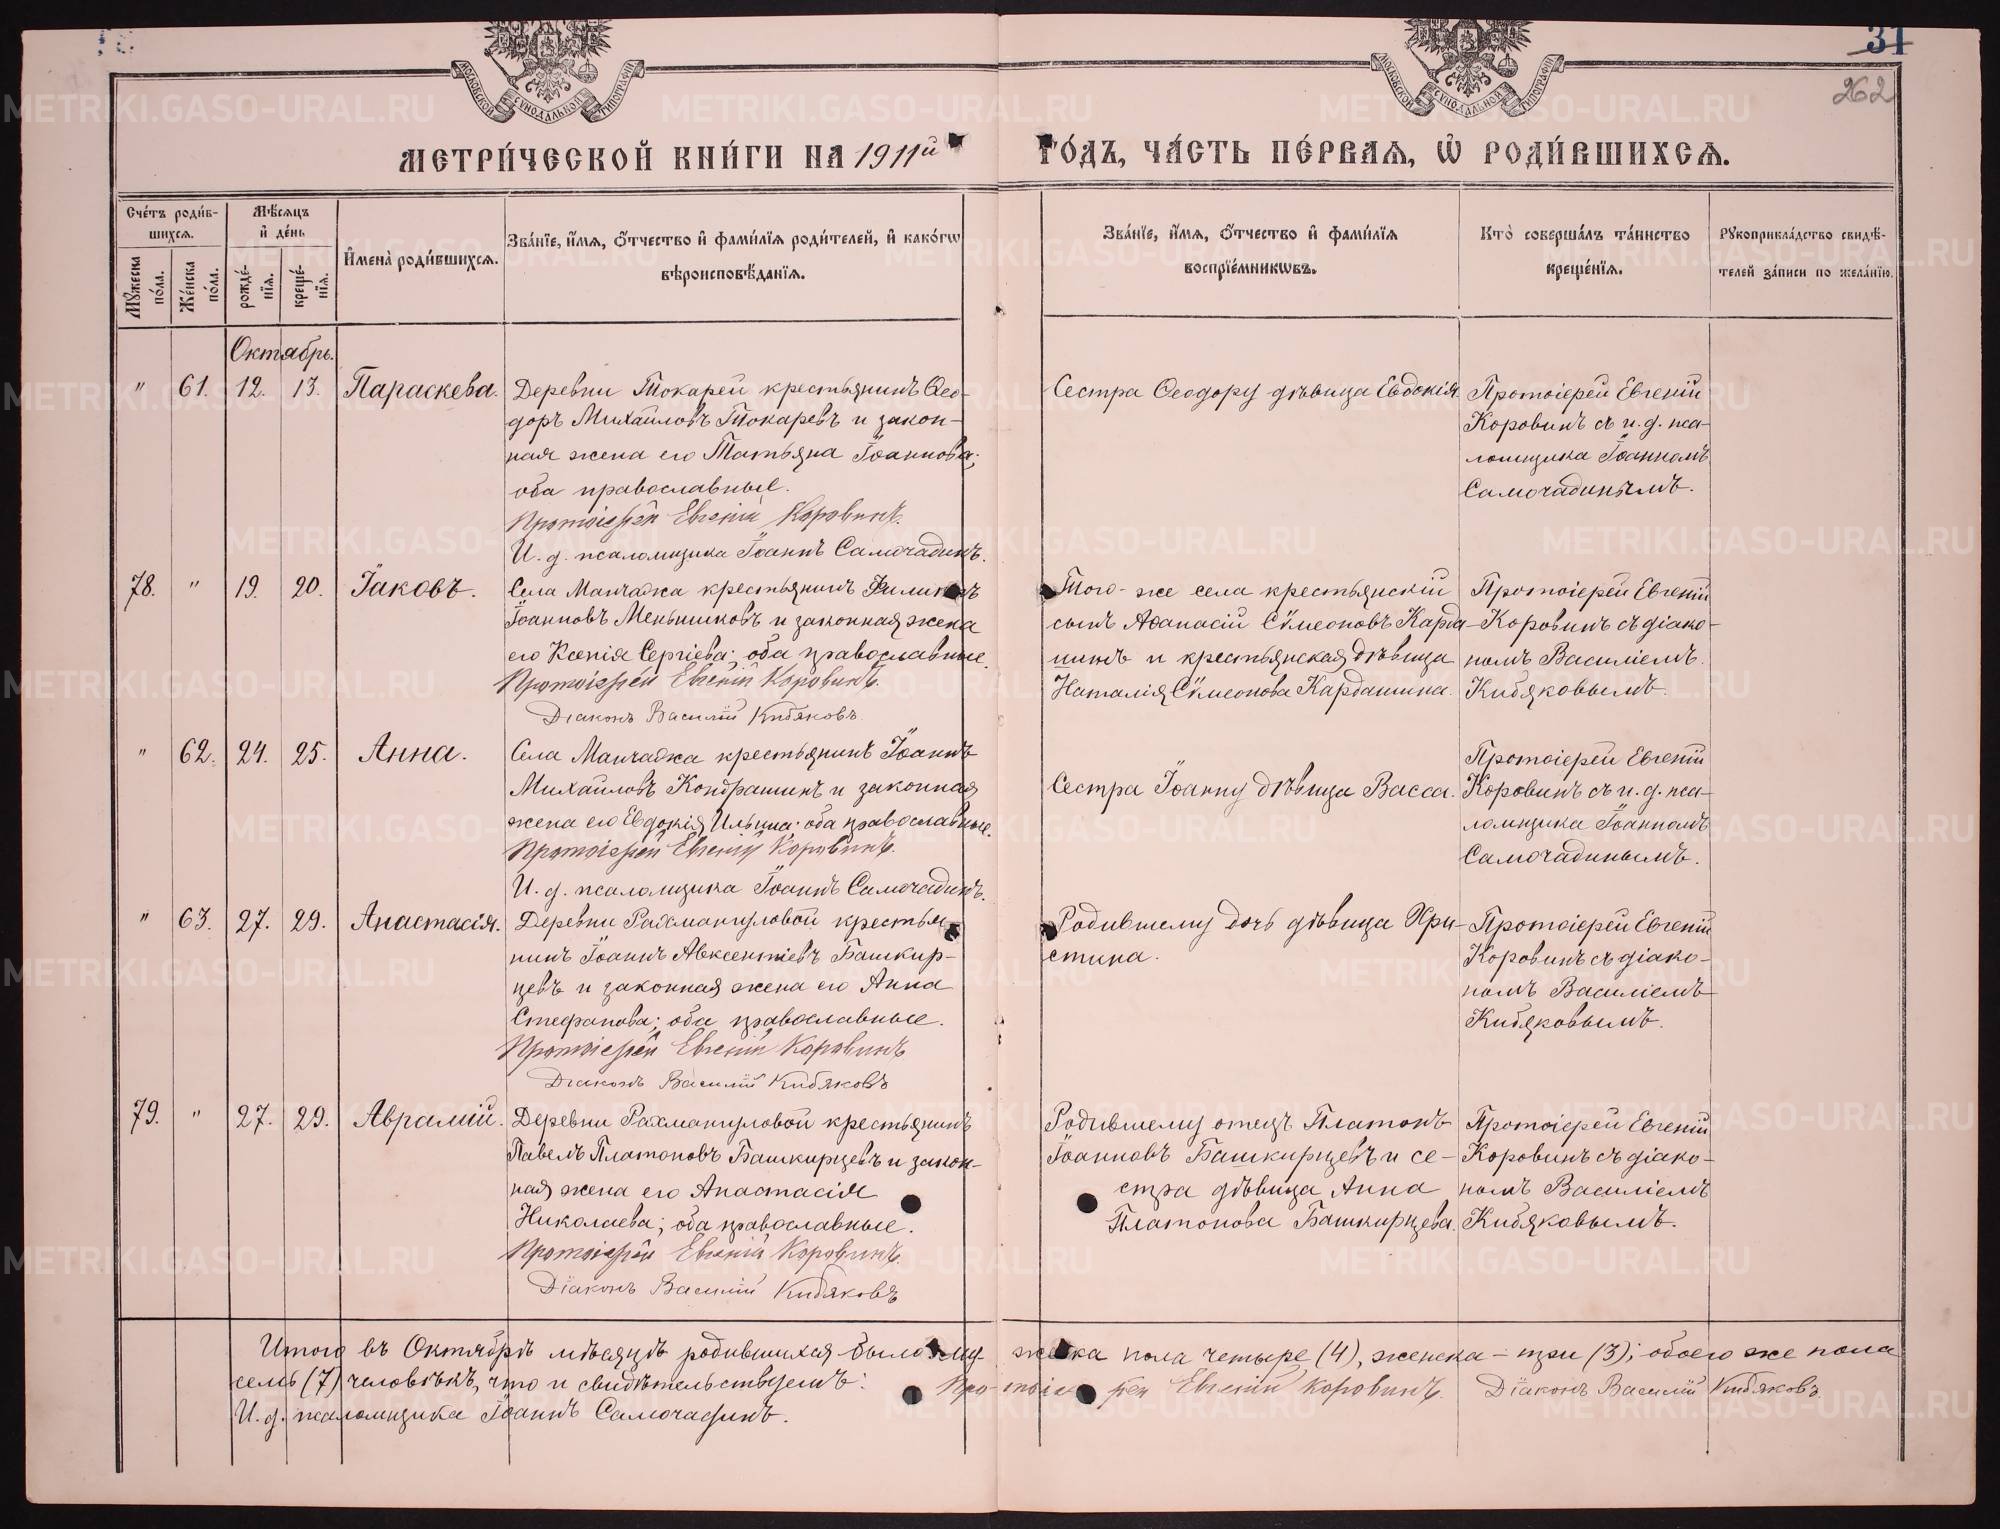 31
262
МОСКОВСКОЙ СѴНОДАЛЬНОЙ ТИПОГРАФІИ
МОСКОВСКОЙ СѴНОДАЛЬНОЙ ТИПОГРАФІИ
МЕТРИ́ЧЕСКОЙ КНИ́ГИ НА 1911й ГО́ДЪ, ЧА́СТЬ ПЕ́РВАЯ, Ѽ РОДИ́ВШИХСЯ.
Сче́тъ роди́в-
шихся.
Мꙋ́жеска по́ла.
Же́нска по́ла.
Мѣ́сяцъ
и҆ де́нь
рожде́-
нїя.
креще́-
нїя.
И҆мена̀ роди́вшихся.
Зва́нїе, и҆́мя, ѻ҆́тчество и҆ фами́лїя роди́телей, и҆ како́гѡ
вѣроисповѣ́данїя.
Зва́нїе, и҆́мя, ѻ҆́тчество и҆ фами́лїя
воспрїе́мникѡвъ.
Кто̀ соверша́лъ та́инство
креще́нїя.
Рꙋкоприкла́дство свидѣ́-
телей за́писи по жела́нїю.
Октябрь.
" 61. 12. 13. Параскева.
Деревни Токарей крестьянинъ Ѳео-
доръ Михайловъ Токаревъ и закон-
ная жена его Татьяна Іоаннова;
оба православные.
Протоіерей Евгеній Коровинъ.
И. д. псаломщика Іоаннъ Самочадинъ.
Сестра Ѳеодору дѣвица Евдокія.
Протоіерей Евгеній
Коровинъ съ и. д. пса-
ломщика Іоанномъ
Самочадинымъ.
78. " 19. 20. Іаковъ.
Села Манчажа крестьянинъ Филиппъ
Іоанновъ Меньшиковъ и законная жена
его Ксенія Сергіева; оба православные.
Протоіерей Евгеній Коровинъ.
Діаконъ Василій Кибяковъ.
Того-же села крестьянскій
сынъ Аѳанасій Сѵмеоновъ Карда-
шинъ и крестьянская дѣвица
Наталія Сѵмеонова Кардашина.
Протоіерей Евгеній
Коровинъ съ діако-
номъ Василіемъ
Кибяковымъ.
" 62. 24. 25. Анна.
Села Манчажа крестьянинъ Іоаннъ
Михайловъ Кондрашинъ и законная
жена его Евдокія Ильина; оба православные.
Протоіерей Евгеній Коровинъ.
И. д. псаломщика Іоаннъ Самочадинъ.
Сестра Іоанну дѣвица Васса.
Протоіерей Евгеній
Коровинъ съ и. д. пса-
ломщика Іоанномъ
Самочадинымъ.
" 63. 27. 29. Анастасія.
Деревни Рахмангуловой крестья-
нинъ Іоаннъ Авксентіевъ Башкир-
цевъ и законная жена его Анна
Стефанова; оба православные.
Протоіерей Евгеній Коровинъ
Діаконъ Василій Кибяковъ
Родившему дочь дѣвица Хри-
стина.
Протоіерей Евгеній
Коровинъ съ діако-
номъ Василіемъ
Кибяковымъ.
79. " 27. 29. Аврамій.
Деревни Рахмангуловой крестьянинъ
Павелъ Платоновъ Башкирцевъ и закон-
ная жена его Анастасія
Николаева; оба православные.
Протоіерей Евгеній Коровинъ.
Діаконъ Василій Кибяковъ
Родившему отецъ Платонъ
Іоанновъ Башкирцевъ и се-
стра дѣвица Анна
Платонова Башкирцева.
Протоіерей Евгеній
Коровинъ съ діако-
номъ Василіемъ
Кибяковымъ.
Итого въ Октябрѣ мѣсяцѣ родившихся было му- жеска пола четыре (4), женска – три (3); обоего же пола
семь (7) человѣкъ, что и свидѣтельствуемъ: Протоіерей Евгеній Коровинъ. Діаконъ Василій Кибяковъ
И. д. псаломщика Іоаннъ Самочадинъ.